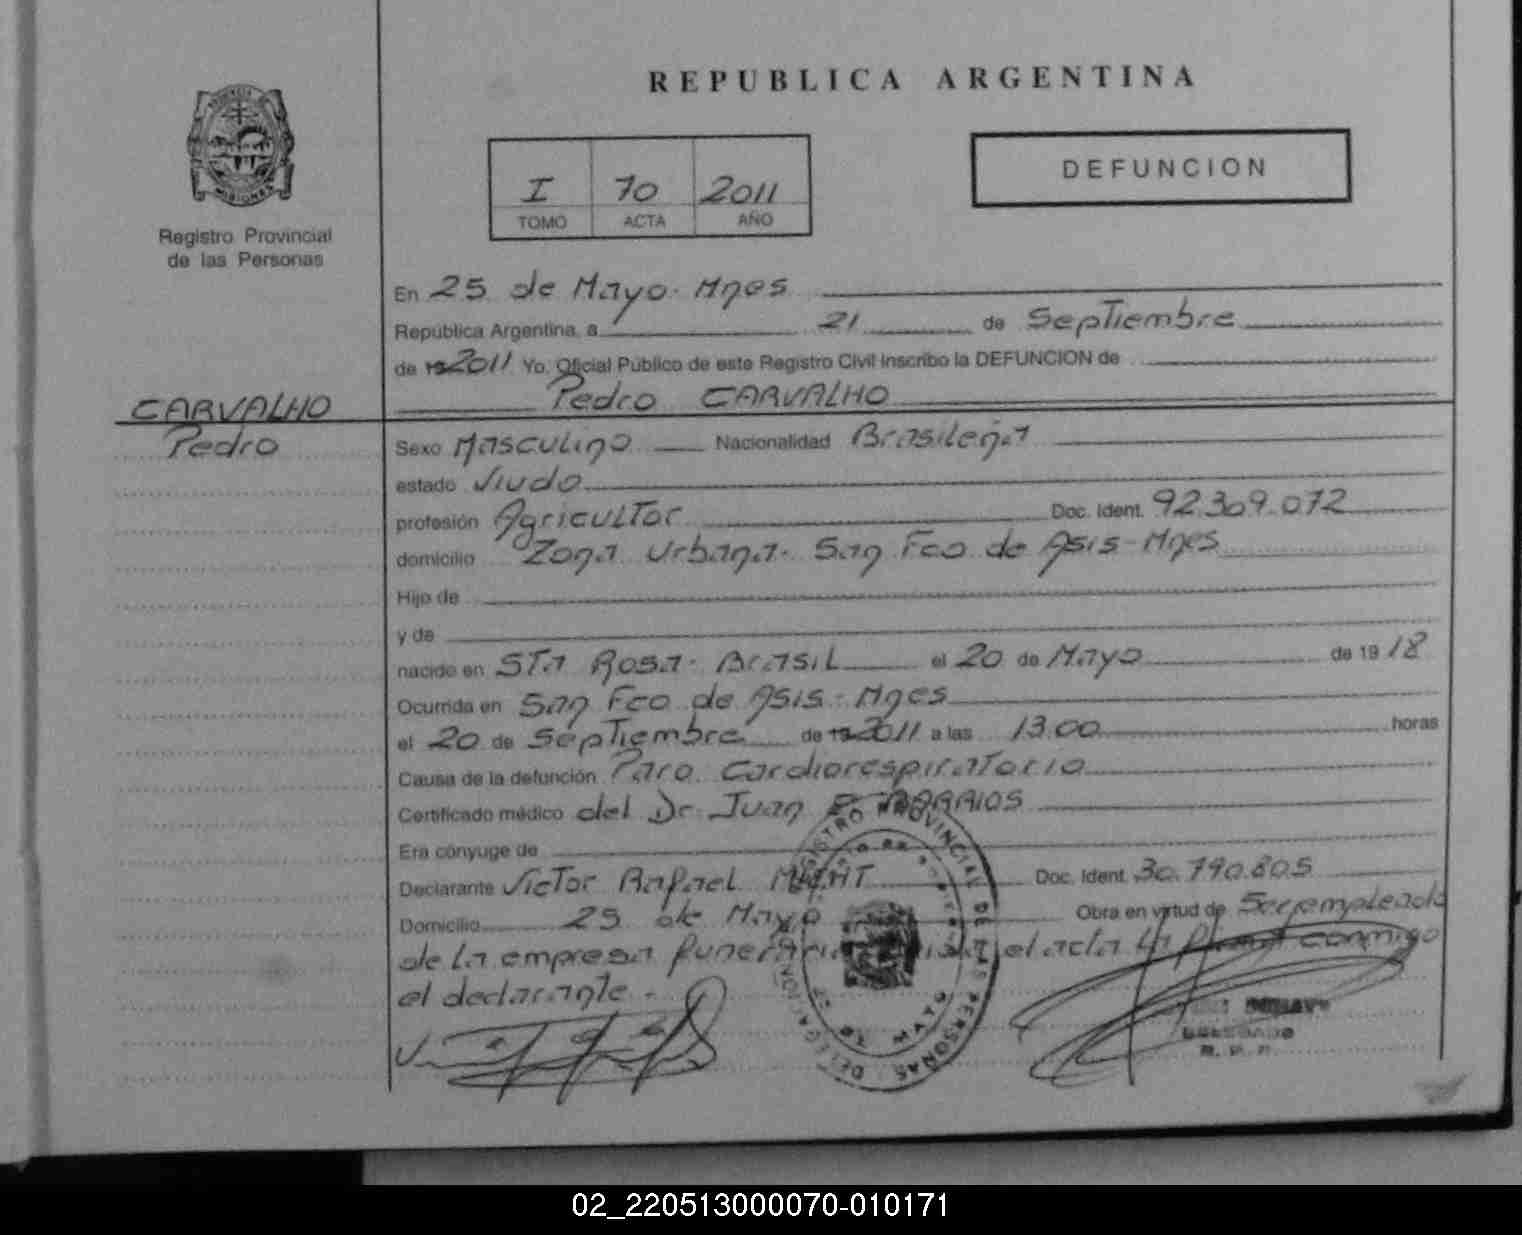 REPUBLICA ARGENTINA
PROVINCIA DE
MISIONES
Registro Provincial
de las Personas
I 70 2011
TOMO ACTA AÑO
DEFUNCION
En 25 de Mayo. Mnes
República Argentina, a 21 de Septiembre
de 19 2011 Yo, Oficial Público de este Registro Civil inscribo la DEFUNCION de
Pedro CARVALHO
CARVALHO
Pedro
Sexo Masculino Nacionalidad Brasileña
estado Viudo
profesión Agricultor Doc. Ident. 92.309.072
domicilio Zona Urbana. San Fco de Asis - Mnes
Hijo de
y de
nacido en Sta Rosa. Brasil el 20 de Mayo de 19 18
Ocurrida en San Fco de Asis - Mnes
el 20 de Septiembre de 19 2011 a las 13.00 horas
Causa de la defunción Paro Cardiorespiratorio
Certificado médico del Dr. Juan BARRIOS
Era cónyuge de
Declarante Victor Rafael Doc. Ident. 30.790.805
Domicilio 25 de Mayo Obra en virtud de Ser empleado
de la empresa funeraria el acta la firma conmigo
el declarante.
REGISTRO PROVINCIAL DE LAS PERSONAS DELEGACION
25 DE MAYO
DELEGADO
R. P. P.
02_220513000070-010171